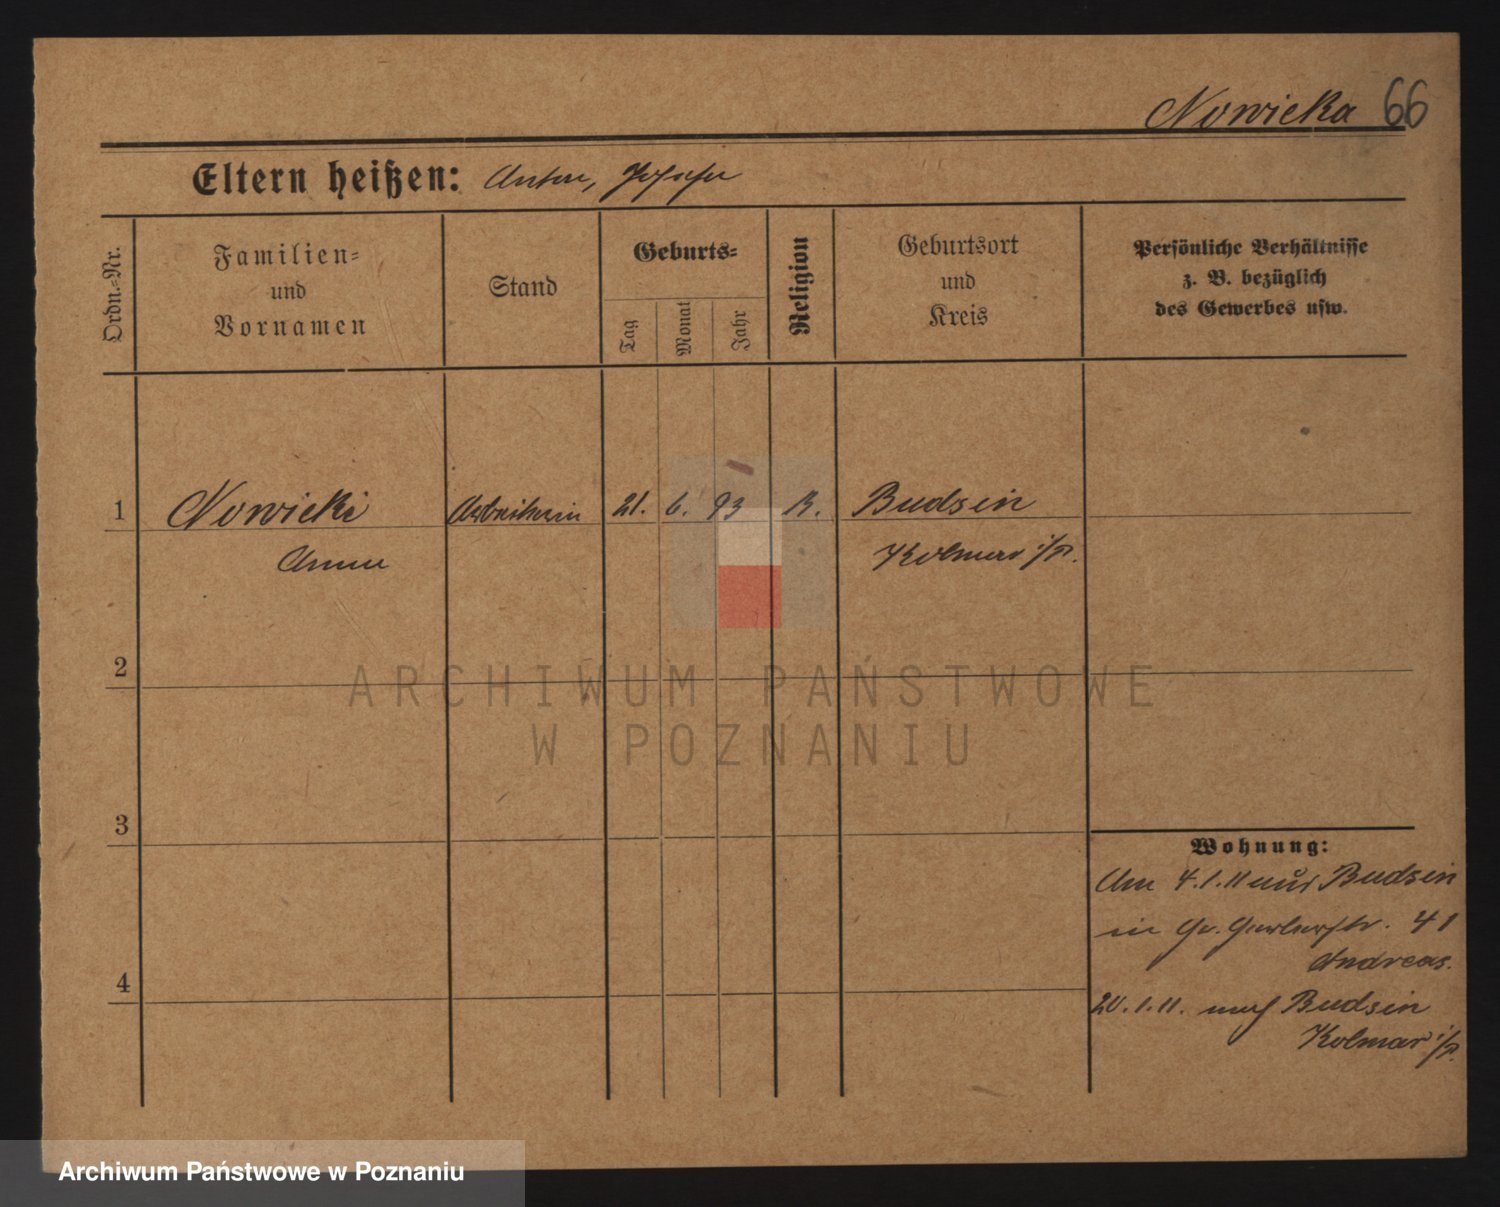 Nowicka 66
Eltern heißen: Anton, Josefa
Ordn.=Nr.
Familien=
und
Vornamen
Stand
Geburts=
Tag
Monat
Jahr
Religion
Geburtsort
und
Kreis
Persönliche Verhältnisse
z. B. bezüglich
des Gewerbes usw.
1 Nowicki Arbeiterin 21. 6. 93 K. Budsin
Anna Kolmar i/P.
2
ARCHIWUM PAŃSTWOWE
W POZNANIU
3
Wohnung:
Am 4.1.11 aus Budsin
in Gr. Gerberstr. 41
Andreas.
4
20.1.11. nach Budsin
Kolmar i/P.
Archiwum Państwowe w Poznaniu